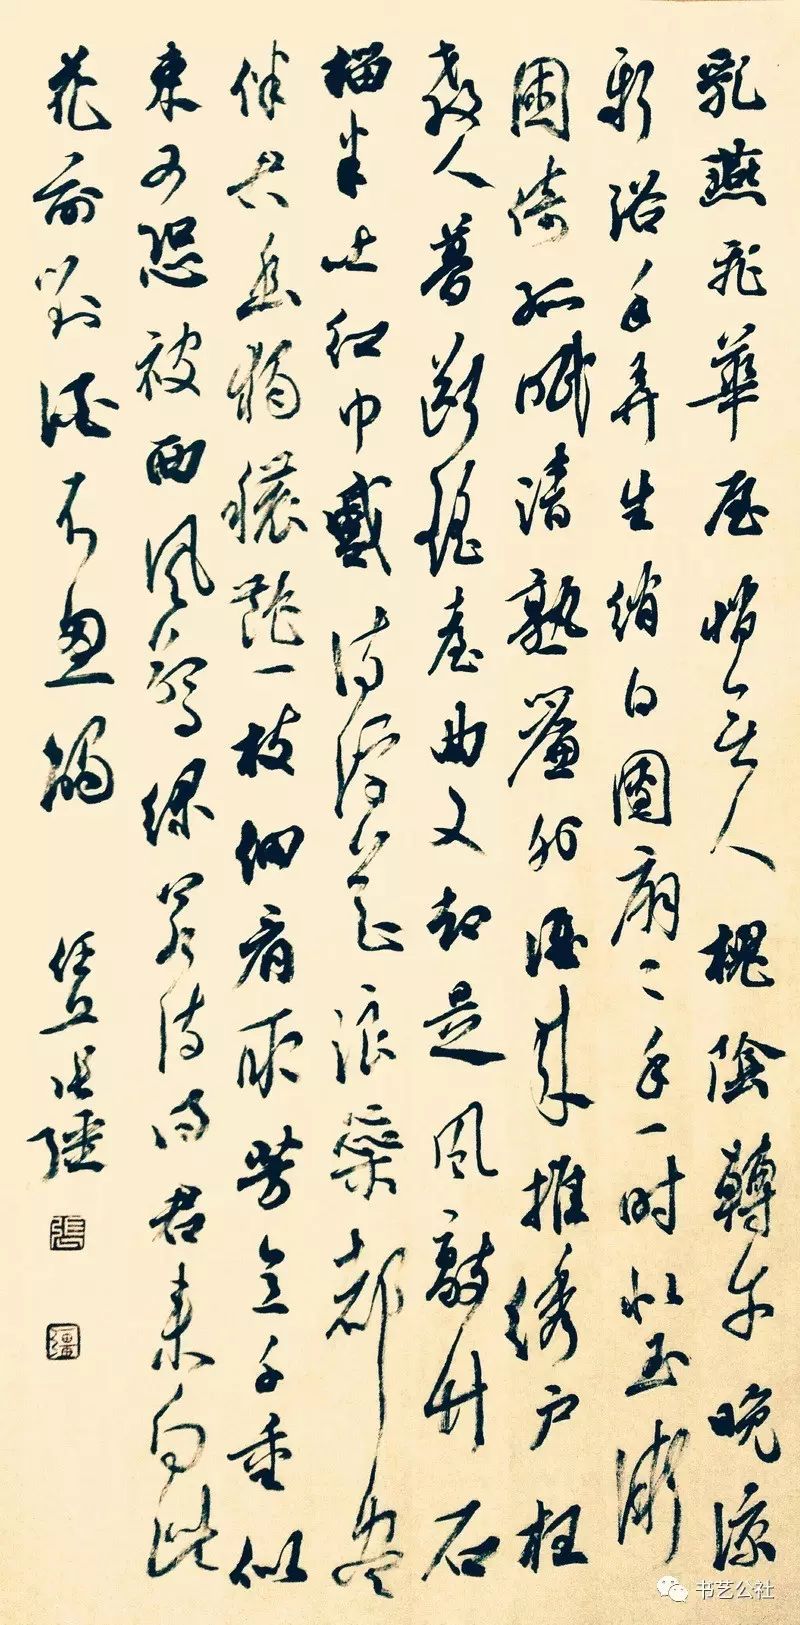 乳燕飛華屋悄無人槐陰轉午晚涼
新浴手弄生绡白團扇〻手一時似玉漸
困倚孤眠清熟簾外谁来推绣户枉
教人夢断瑶臺曲又却是風敲竹石
榴半吐红巾蹙待浮花浪蕊都盡
伴君幽獨穠艷一枝細看取芳意千重似
束又恐被西風驚緑若待得君来向此
花前對酒不忍觸 任丘張疆
張
疆
书艺公社